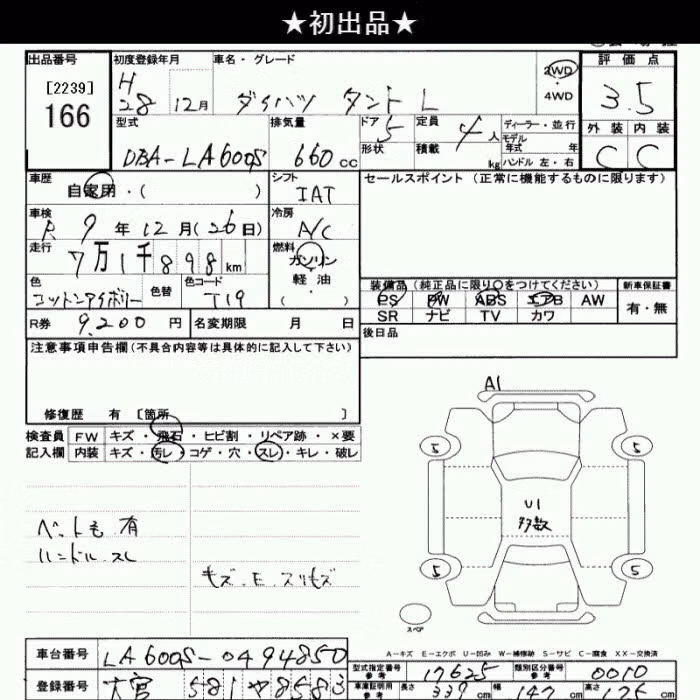 ★初出品★
出品番号 初度登録年月 車名・グレード 2WD 評価点
[2239] H 28年 12月 ダイハツ タント L ・4WD 3.5
166 型式 排気量 ドア 5 定員 4人 ディーラー・並行 外装 内装
DBA-LA600S 660cc 形状 積載 kg モデル年式 年 ハンドル 左・右 C C
車歴 自家用・( ) シフト IAT セールスポイント (正常に機能するものに限ります)
車検 R 9年12月(26日) 冷房 A/C
走行 7万1千898km 燃料 ガソリン
軽油
( )
色 コットンアイボリー 色替 色コード T19
装備品(純正品に限り○をつけてください) 新車保証書
PS PW ABS エアB AW 有・無
SR ナビ TV カワ
R券 9,200円 名変期限 月 日 後日品
注意事項申告欄(不具合内容等は具体的に記入して下さい)
修復歴 有 [箇所 ]
A1
検査員 FW キズ・飛石・ヒビ割・リペア跡・×要
記入欄 内装 キズ・汚レ・コゲ・穴・スレ・キレ・破レ
5 5
U1
多数
ペット毛 有
ハンドル スレ
キズ・E・スリキズ
5 5
スペア
A-キズ E-エクボ U-凹み W-補修跡 S-サビ C-腐食 XX-交換済
車台番号 LA600S-0494850
型式指定番号 参考 17625 類別区分番号 参考 0010
登録番号 大宮 581 ヤ 8583
車庫証明用 参考 長さ 339cm 幅 147cm 高さ 175cm